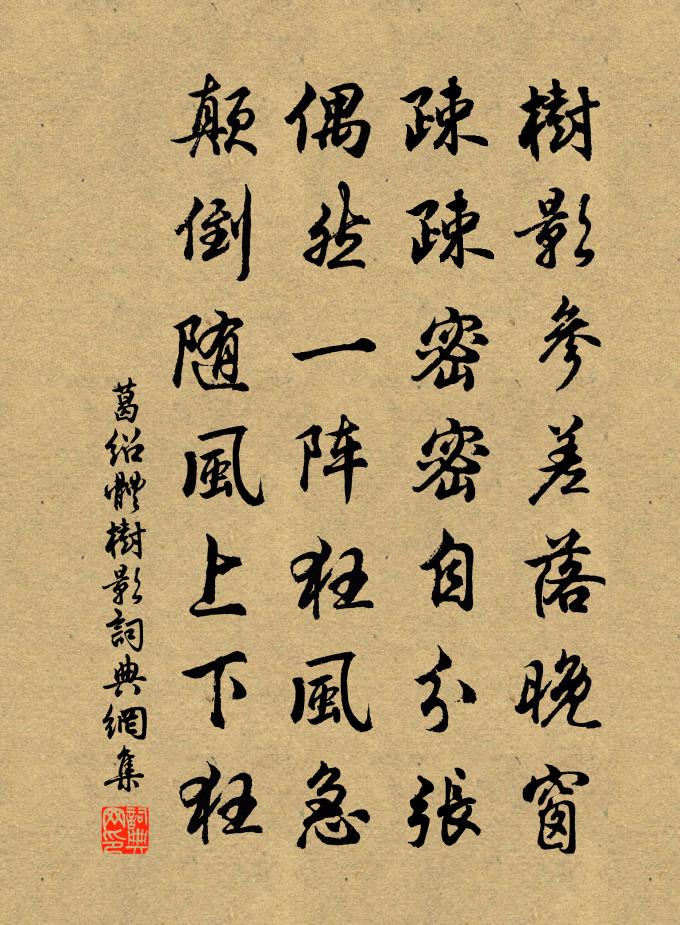 樹影參差落晚窗
疎疎密密自分張
偶然一阵狂風急
颠倒随風上下狂
葛绍體樹影詞典網集
詞典网印